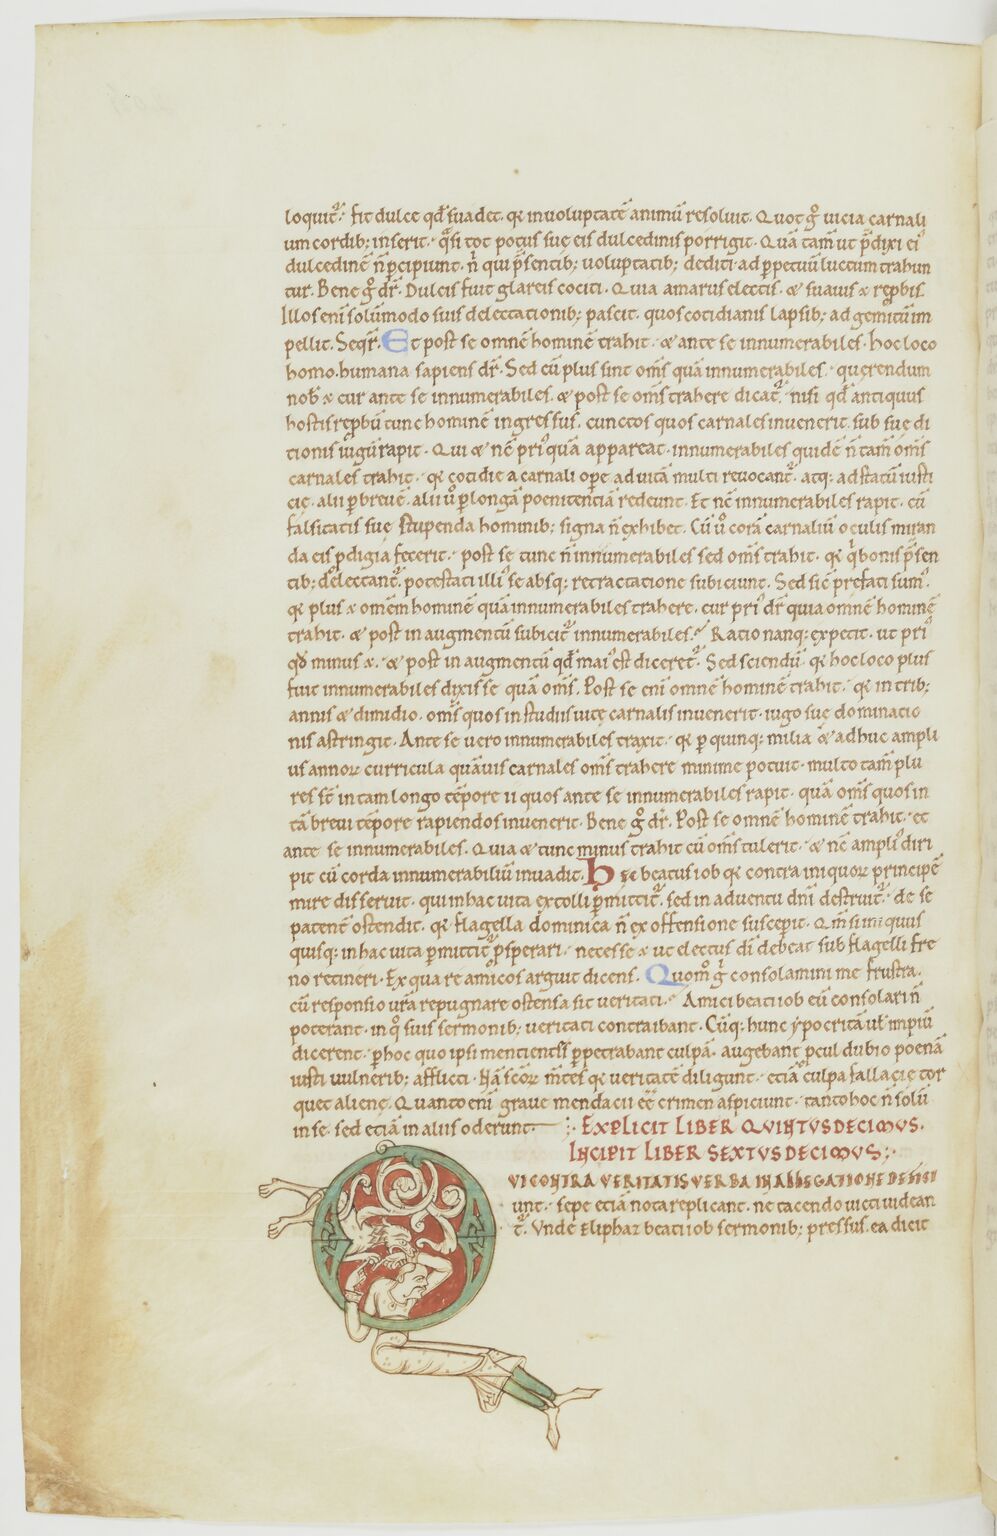 loquit᷑. fit dulce qd̄ suadet. qꝛ in voluptatē animū resoluit. Quot gͦ uicia carnali
um cordib; inserit. qͣsi tot potus suę eis dulcedinis porrigit. Quā tam̄ ut p̄dixi ei᷒
dulcedinē n̄ p̄cipiunt. nͥ qui p̄sentib; uoluptatib; dediti ad ꝑpetuū luctum trahun
tur. Bene gͦ dr̄. Dulcis fuit glareis cociti. Quia amarus electis. & suauis ē rep̄bis.
Illos enī solūmodo suis delectationib; pascit. quos cotidianis lapsib; ad gemitū im
pellit. Seqr̄. Et post se omnē hominē trahit. & ante se innumerabiles. Hoc loco
homo. humana sapiens dr̄. Sed cū plus sint om̄s quā innumerabiles. querendum
nob̄ ē cur ante se innumerabiles. & post se om̄s trahere dicat᷑. nisi qd̄ antiquus
hostis rep̄bū tunc hominē ingressus. cunctos quos carnales inuenerit. sub suę di
tionis iugū rapit. Qui & nc̄ pri᷒quā appareat. innumerabiles quidē n̄ tam̄ om̄s
carnales trahit. qꝛ cotidie a carnali oꝑe ad uitā multi reuocant᷑. atq; ad statū iusti
cię. alii ꝑ breuē. alii ū ꝑ longā poenitentiā redeunt. Et nc̄ innumerabiles rapit. cū
falsitatis suę stupenda hominib; signa n̄ exhibet. Cū ū corā carnaliū oculis miran
da eis ꝓdigia fecerit. post se tunc n̄ innumerabiles sed om̄s trahit. qꝛ qͥ bonis p̄sen
tib; delectant᷑. potestati illi᷒ se absq; retractatione subiciunt. Sed sic̄ prefati sum᷒.
qꝛ plus ē omēm hominē quā innumerabiles trahere. cur pri᷒ dr̄ quia omnē hominē
trahit. & post in augmentū subicit᷑ innumerabiles. Ratio nanq; expetit. ut pri᷒
qd̄ minus ē. & post in augmentū qd̄ mai᷒ est diceret᷑. Sed sciendū. qꝛ hoc loco plus
fuit innumerabiles dixisse quā om̄s. Post se enī omnē hominē trahit. qꝛ in trib;
annis & dimidio. om̄s quos in studiis uitę carnalis inuenerit. iugo suę dominatio
nis astringit. Ante se uero innumerabiles traxit. qꝛ ꝑ quinq; milia & adhuc ampli
us annoꝝ curricula quāuis carnales om̄s trahere minime potuit. multo tam̄ plu
res st̄ in tam longo tēpore ii quos ante se innumerabiles rapit. quā om̄s quos in
tā breui tēpore rapiendos inuenerit. Bene gͦ dr̄. Post se omnē hominē trahit. et
ante se innumerabiles. Quia & tunc minus trahit cū om̄s tulerit. & nc̄ ampli᷒ diri
pit cū corda innumerabiliū inuadit. Hęc beatus iob qꝛ contra iniquoꝝ principē
mire disseruit. qui in hac uita extolli ꝑmittit᷑. sed in aduentu dn̄i destruit᷑. de se
patent ostendit. qꝛ flagella dominica n̄ ex offensione suscepit. Qm̄ si iniquus
quisq; in hac uita ꝑmittit᷑ ꝓsperari. necesse ē ut electus di᷒ debeat sub flagelli fre
no retineri. Ex qua re amicos arguit dicens. Quom̊ gͥ consolamini me frustra.
cū responsio ur̄a repugnare ostensa sit ueritati. Amici beati iob eū consolari n̄
poterant. in qͦ suis sermonib; ueritati contraibant. Cūq; hunc ypocritā ut̄ impiū
dicerent. ꝑ hoc quo ipsi mentientes ꝑpetrabant culpā. augebant ꝓcul dubio poenā
iusti uulnerib; afflicti. Nā sc̄oꝝ mtēs qꝛ ueritatē diligunt. etiā culpa fallacię tor
quet alienę. Quanto enī graue mendacii eē crimen aspiciunt. tanto hoc n̄ solū
in se. sed etiā in aliis oderunt. EXPLICIT LIBER QUINTUS DECIMUS.
INCIPIT LIBER SEXTUS DECIMUS.
QUI CONTRA VERITATIS VERBA IN ALLEGATIONE DEFICI
unt. sepe etiā nota replicant. ne tacendo uicti uidean
t᷑. Unde Eliphaz beati iob sermonib; pressus. ea dicit